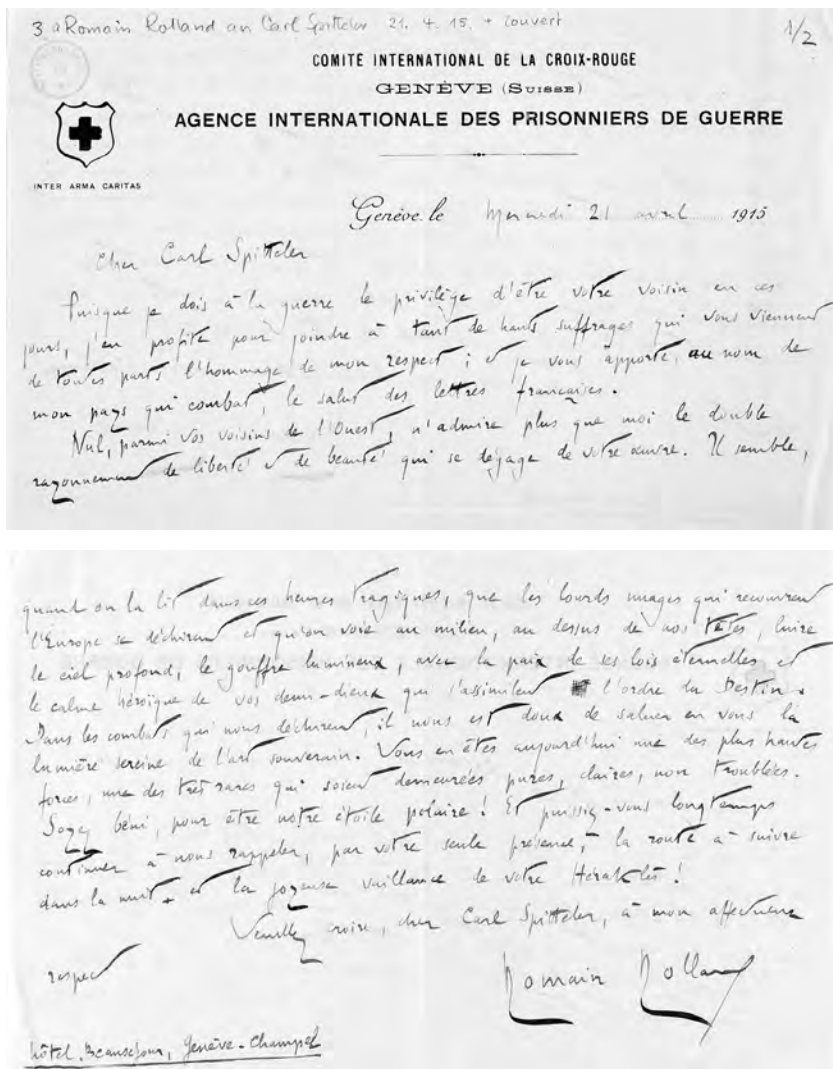 3 a Romain Rolland an Carl Spitteler 21. 4. 15. + Couvert
1/2
COMITÉ INTERNATIONAL DE LA CROIX-ROUGE
GENÈVE (SUISSE)
AGENCE INTERNATIONALE DES PRISONNIERS DE GUERRE
INTER ARMA CARITAS
Genève, le Mercredi 21 avril 1915
Cher Carl Spitteler
Puisque je dois à la guerre le privilège d'être votre voisin en ces
jours, j'en profite pour joindre à tant de hauts suffrages qui vous viennent
de toutes parts l'hommage de mon respect ; et je vous apporte, au nom de
mon pays qui combat, le salut des lettres françaises.
Nul, parmi vos voisins de l'Ouest, n'admire plus que moi le double
rayonnement de liberté et de beauté qui se dégage de votre œuvre. Il semble,
quand on la lit dans ces heures tragiques, que les lourds nuages qui recouvrent
l'Europe se déchirent et qu'on voie au milieu, au dessus de nos têtes, luire
le ciel profond, le gouffre lumineux, avec la paix de ses lois éternelles et
le calme héroïque de vos demi-dieux qui s'assimilent l'ordre du Destin.
Dans les combats qui nous déchirent, il nous est doux de saluer en vous la
lumière sereine de l'art souverain. Vous en êtes aujourd'hui une des plus hautes
forces, une des très rares qui soient demeurées pures, claires, non troublées.
Soyez béni, pour être notre étoile polaire ! Et puissiez-vous longtemps
continuer à nous rappeler, par votre seule présence, la route à suivre
dans la nuit, et la joyeuse vaillance de votre Héraklès !
Veuillez croire, cher Carl Spitteler, à mon affectueux
respect
Romain Rolland
hôtel Beauséjour, Genève-Champel